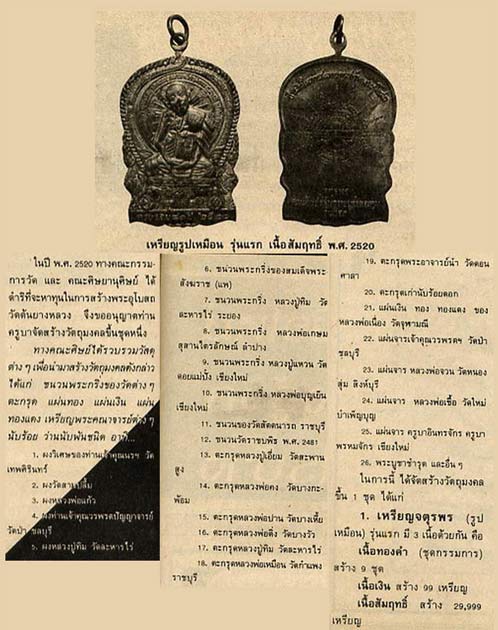 เหรียญรูปเหมือน รุ่นแรก เนื้อสัมฤทธิ์ พ.ศ.2520
ในปี พ.ศ. 2520 ทางคณะกรรม-
การวัด และ คณะศิษยานุศิษย์ ได้
ดำริที่จะหาทุนในการสร้างพระอุโบสถ
วัดต้นยางหลวง จึงขออนุญาตท่าน
ครูบาจัดสร้างวัตถุมงคลขึ้นชุดหนึ่ง
ทางคณะศิษย์ได้รวบรวมวัสดุ
ต่างๆ เพื่อนำมาสร้างวัตถุมงคลดังกล่าว
ได้แก่ ชนวนพระกริ่งของวัดต่างๆ
ตะกรุด แผ่นทอง แผ่นเงิน แผ่น
ทองแดง เหรียญพระคณาจารย์ต่างๆ
นับร้อย ว่านนับพันชนิด อาทิ...
1. ผงวิเศษของท่านเจ้าคุณนรฯ วัด
เทพศิรินทร์
2. ผงวัดสามปลื้ม
3. ผงหลวงพ่อแก้ว
4. ผงท่านเจ้าคุณวรพรตปัญญาจารย์
วัดป่า ชลบุรี
5. ผงหลวงปู่ทิม วัดละหารไร่
6. ชนวนพระกริ่งของสมเด็จพระ
สังฆราช (แพ)
7. ชนวนพระกริ่ง หลวงปู่ทิม วัด
ละหารไร่ ระยอง
8. ชนวนพระกริ่ง หลวงพ่อเกษม
สุสานไตรลักษณ์ ลำปาง
9. ชนวนพระกริ่ง หลวงปู่แหวน วัด
ดอยแม่ปั๋ง เชียงใหม่
10. ชนวนพระกริ่ง หลวงพ่อบุญเย็น
เชียงใหม่
11. ชนวนของวัดสัตตนารถ ราชบุรี
12. ชนวนวัดราชบพิธ พ.ศ. 2481
13. ตะกรุดหลวงปู่เอี่ยม วัดสะพาน
สูง
14. ตะกรุดหลวงพ่อคง วัดบางกะ-
พ้อม
15. ตะกรุดหลวงพ่อปาน วัดบางเหี้ย
16. ตะกรุดหลวงพ่อดิ่ง วัดบางวัว
17. ตะกรุดหลวงปู่ทิม วัดละหารไร่
18. ตะกรุดหลวงพ่อเหมือน วัดกำแพง
ราชบุรี
19. ตะกรุดพระอาจารย์นำ วัดดอน
ศาลา
20. ตะกรุดเก่านับร้อยดอก
21. แผ่นเงิน ทอง ทองแดง ของ
หลวงพ่อเนื่อง วัดจุฬามณี
22. แผ่นจารเจ้าคุณวรพรตฯ วัดป่า
ชลบุรี
23. แผ่นจาร หลวงพ่อจวน วัดหนอง
สุ่ม สิงห์บุรี
24. แผ่นจาร หลวงพ่อเชื้อ วัดใหม่
บำเพ็ญบุญ
25. แผ่นจาร ครูบาอินทรจักร ครูบา
พรหมจักร เชียงใหม่
26. พระบูชาชำรุด และอื่นๆ
ในการนี้ ได้จัดสร้างวัตถุมงคล
ขึ้น 1 ชุด ได้แก่
1. เหรียญจตุรพร (รูป
เหมือน) รุ่นแรก มี 3 เนื้อด้วยกัน คือ
เนื้อทองคำ (ชุดกรรมการ)
สร้าง 9 ชุด
เนื้อเงิน สร้าง 99 เหรียญ
เนื้อสัมฤทธิ์ สร้าง 29,999
เหรียญ